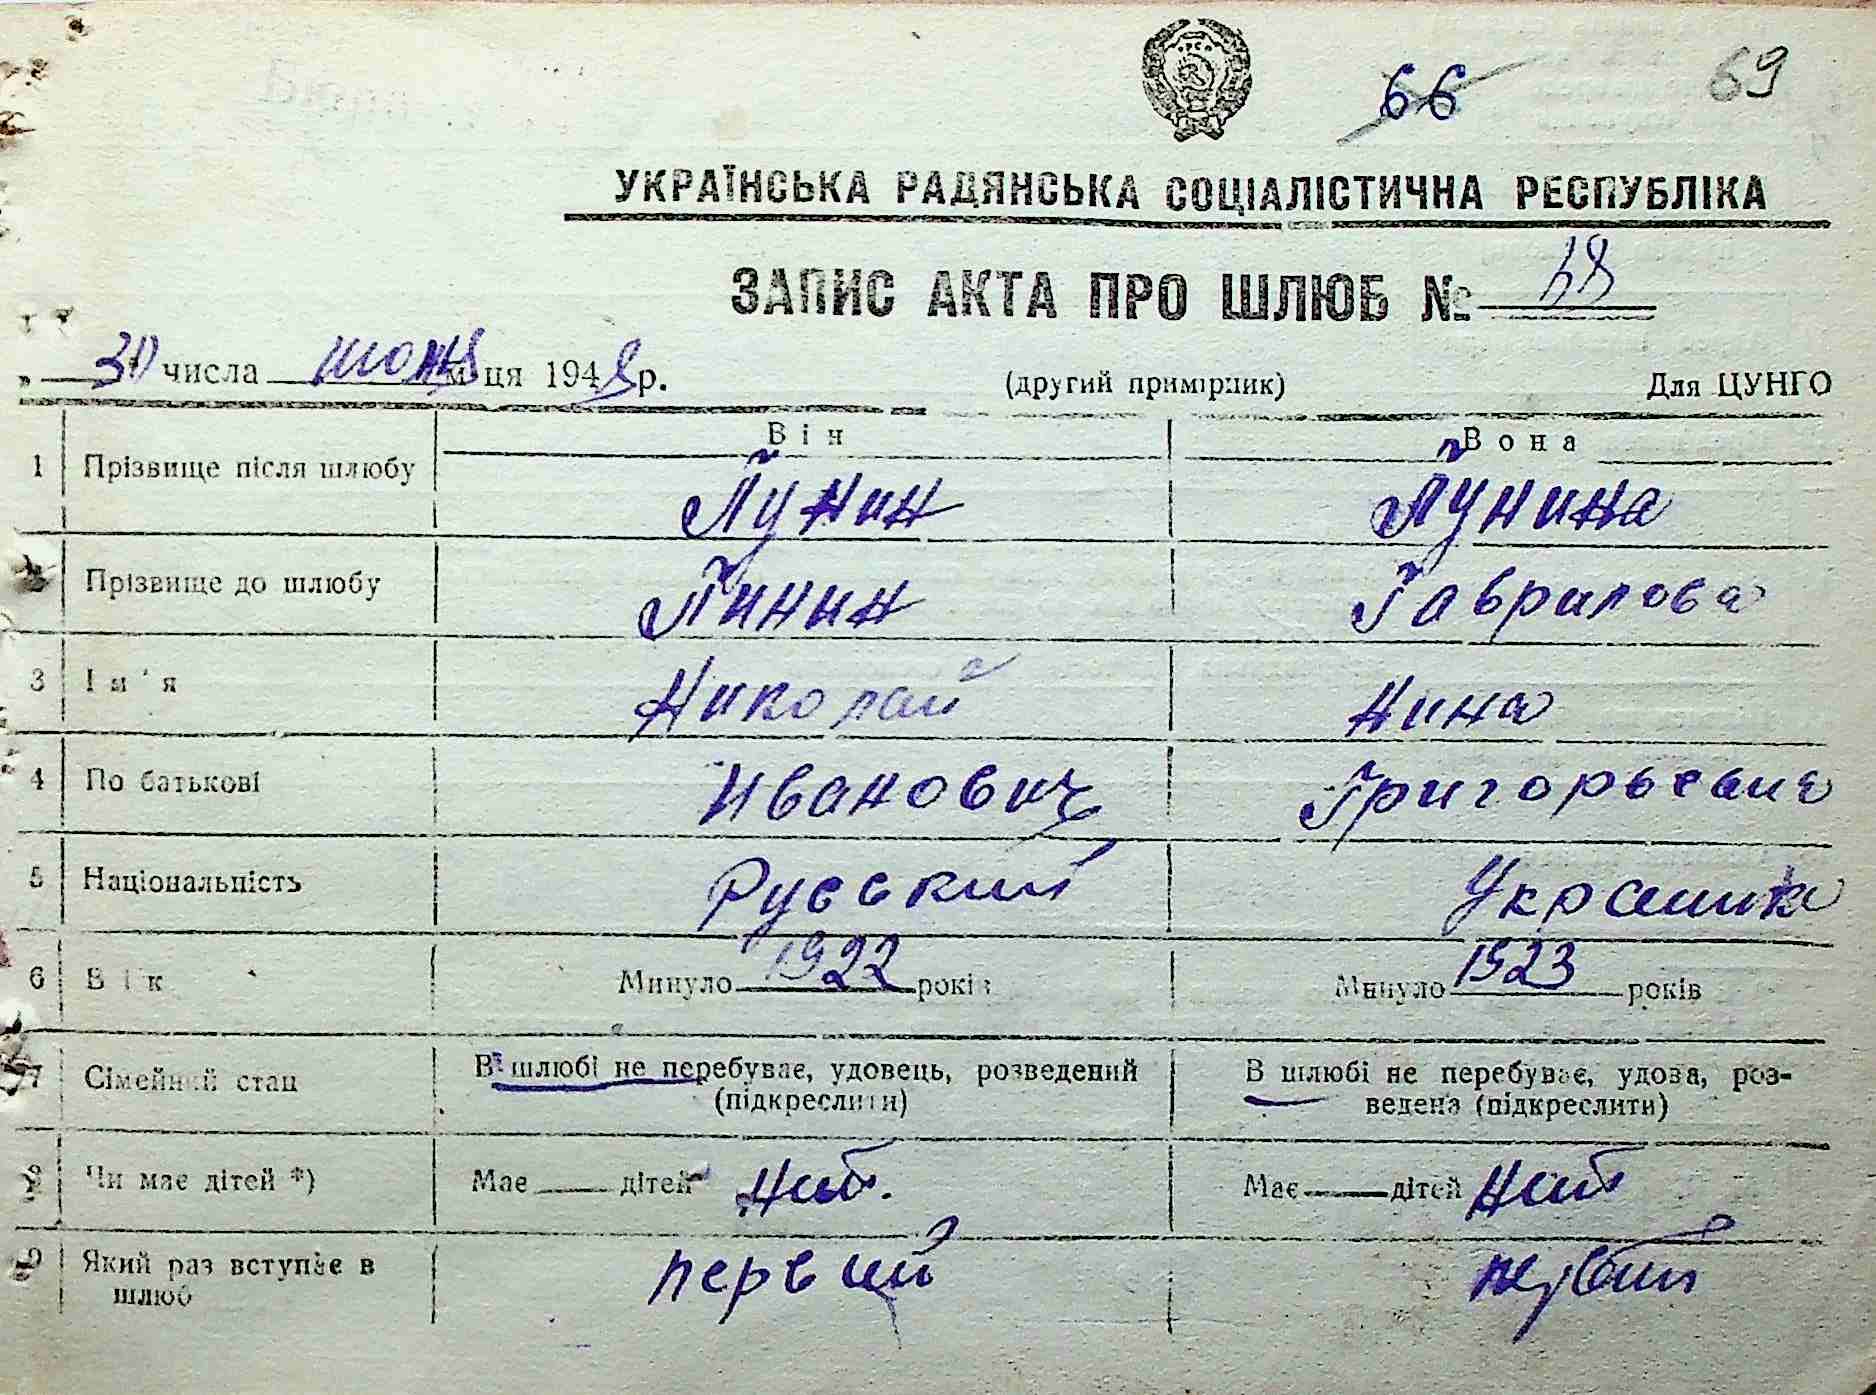 66 69
УКРАЇНСЬКА РАДЯНСЬКА СОЦІАЛІСТИЧНА РЕСПУБЛІКА
ЗАПИС АКТА ПРО ШЛЮБ № 68
„ 30 числа июня м-ця 1948 р. (другий примірник) Для ЦУНГО
Він Вона
1 Прізвище після шлюбу Лунин Лунина
2 Прізвище до шлюбу Гаврилова
3 Ім'я Николай Нина
4 По батькові Иванович Григорьевна
5 Національність Русский Украинка
6 Вік Минуло 1922 років Минуло 1923 років
7 Сімейний стан В шлюбі не перебуває, удовець, розведений В шлюбі не перебуває, удова, роз-
(підкреслити) ведена (підкреслити)
8 Чи має дітей *) Має дітей нет. Має дітей нет
9 Який раз вступає в первий первий
шлюб